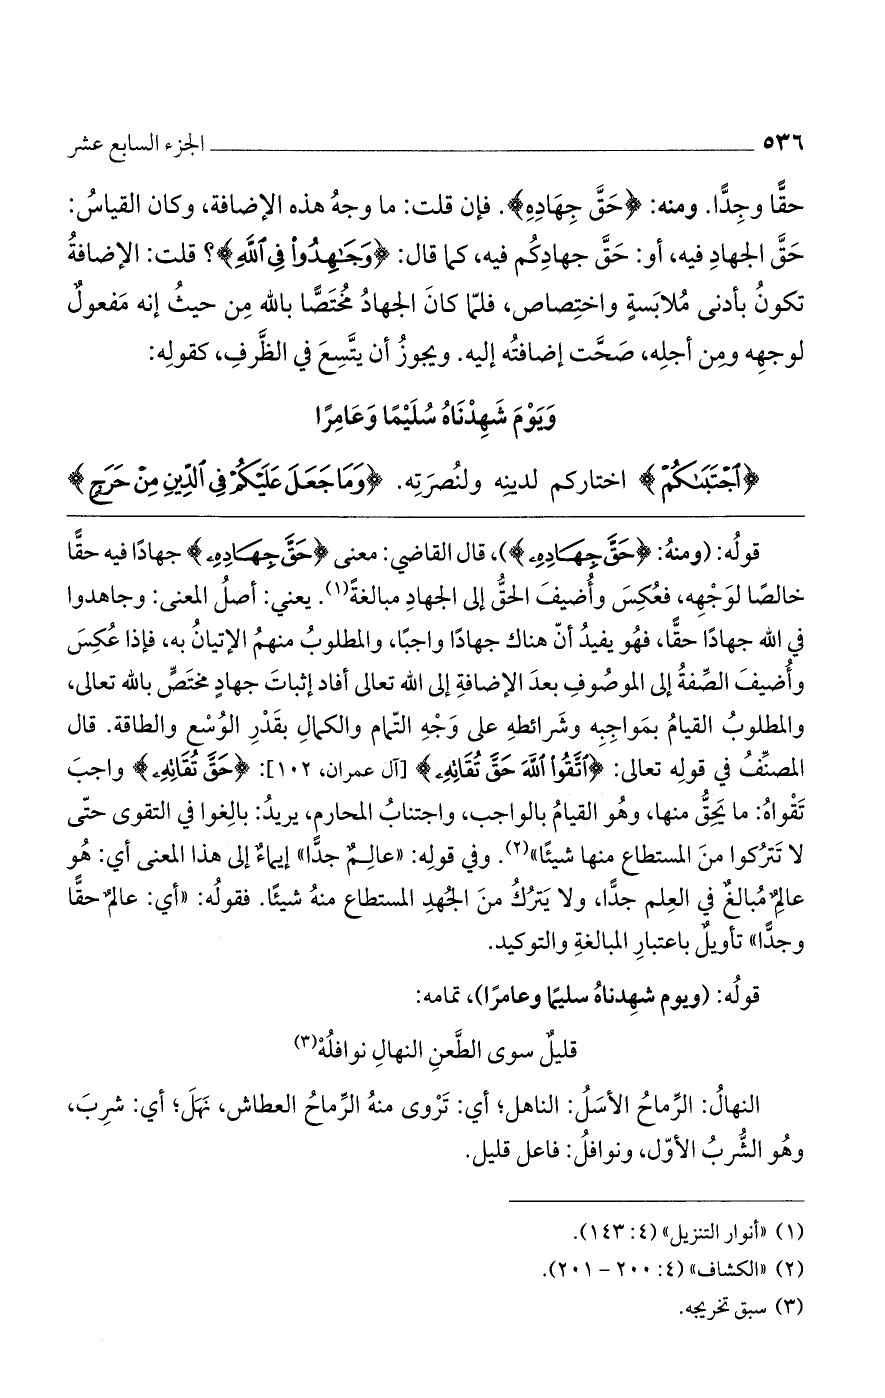 ٥٣٦ الجزء السابع عشر
حقًّا وجِدًّا. ومنه: ﴿حَقَّ جِهَادِهِ﴾. فإن قلت: ما وجهُ هذه الإضافة، وكان القياسُ:
حَقَّ الجهادِ فيه، أو: حَقَّ جهادِكُم فيه، كما قال: ﴿وَجَـٰهِدُوا۟ فِى ٱللَّهِ﴾؟ قلت: الإضافةُ
تكونُ بأدنى مُلابَسةٍ واختِصاص، فلمّا كانَ الجهادُ مُختَصًّا بالله مِن حيثُ إنه مَفعولٌ
لوجهِه ومِن أجلِه، صَحَّت إضافتُه إليه. ويجوزُ أن يتَّسِعَ في الظَّرفِ، كقولِه:
وَيَوْمَ شَهِدْنَاهُ سُلَيْمًا وَعَامِرًا
﴿ٱجْتَبَىٰكُمْ﴾ اختاركم لدينِه ولنُصرَتِه. ﴿وَمَا جَعَلَ عَلَيْكُمْ فِى ٱلدِّينِ مِنْ حَرَجٍ﴾
قولُه: (ومنهُ: ﴿حَقَّ جِهَادِهِۦ﴾)، قال القاضي: معنى ﴿حَقَّ جِهَادِهِۦ﴾ جهادًا فيه حقًّا
خالصًا لوَجْهِه، فعُكِسَ وأُضيفَ الحقُّ إلى الجهادِ مبالغةً(١). يعني: أصلُ المعنى: وجاهدوا
في الله جهادًا حقًّا، فهُو يفيدُ أنّ هناك جهادًا واجبًا، والمطلوبُ منهمُ الإتيانُ به، فإذا عُكِسَ
وأُضيفَ الصِّفةُ إلى الموصُوفِ بعدَ الإضافةِ إلى الله تعالى أفاد إثباتَ جهادٍ مختَصٍّ بالله تعالى،
والمطلوبُ القيامُ بمَواجِبِه وشَرائطهِ على وَجْهِ التّمام والكمالِ بقَدْرِ الوُسْع والطاقة. قال
المصنِّفُ في قولِه تعالى: ﴿ٱتَّقُوا۟ ٱللَّهَ حَقَّ تُقَاتِهِۦ﴾ [آل عمران، ١٠٢]: ﴿حَقَّ تُقَاتِهِۦ﴾ واجبَ
تَقْواهُ: ما يَحِقُّ منها، وهُو القيامُ بالواجب، واجتنابُ المحارم، يريدُ: بالِغوا في التقوى حتّى
لا تَترُكوا منَ المستطاع منها شيئًا»(٢). وفي قولِه: «عالِـمٌ جدًّا» إيماءٌ إلى هذا المعنى أي: هُو
عالِمٌ مُبالغٌ في العِلم جدًّا، ولا يَترُكُ منَ الجُهدِ المستطاع منهُ شيئًا. فقولُه: «أي: عالمٌ حقًّا
وجدًّا» تأويلٌ باعتبارِ المبالغةِ والتوكيد.
قولُه: (ويوم شهِدناهُ سليمًا وعامرًا)، تمامه:
قليلٌ سوى الطَّعنِ النهالِ نوافلُهْ(٣)
النهالُ: الرِّماحُ الأسَلُ: الناهل؛ أي: تَرْوى منهُ الرِّماحُ العطاش، نَهَلَ؛ أي: شرِبَ،
وهُو الشُّربُ الأوّل، ونوافلُ: فاعل قليل.
(١) «أنوار التنزيل» (٤: ١٤٣).
(٢) «الكشاف» (٤: ٢٠٠ - ٢٠١).
(٣) سبق تخريجه.